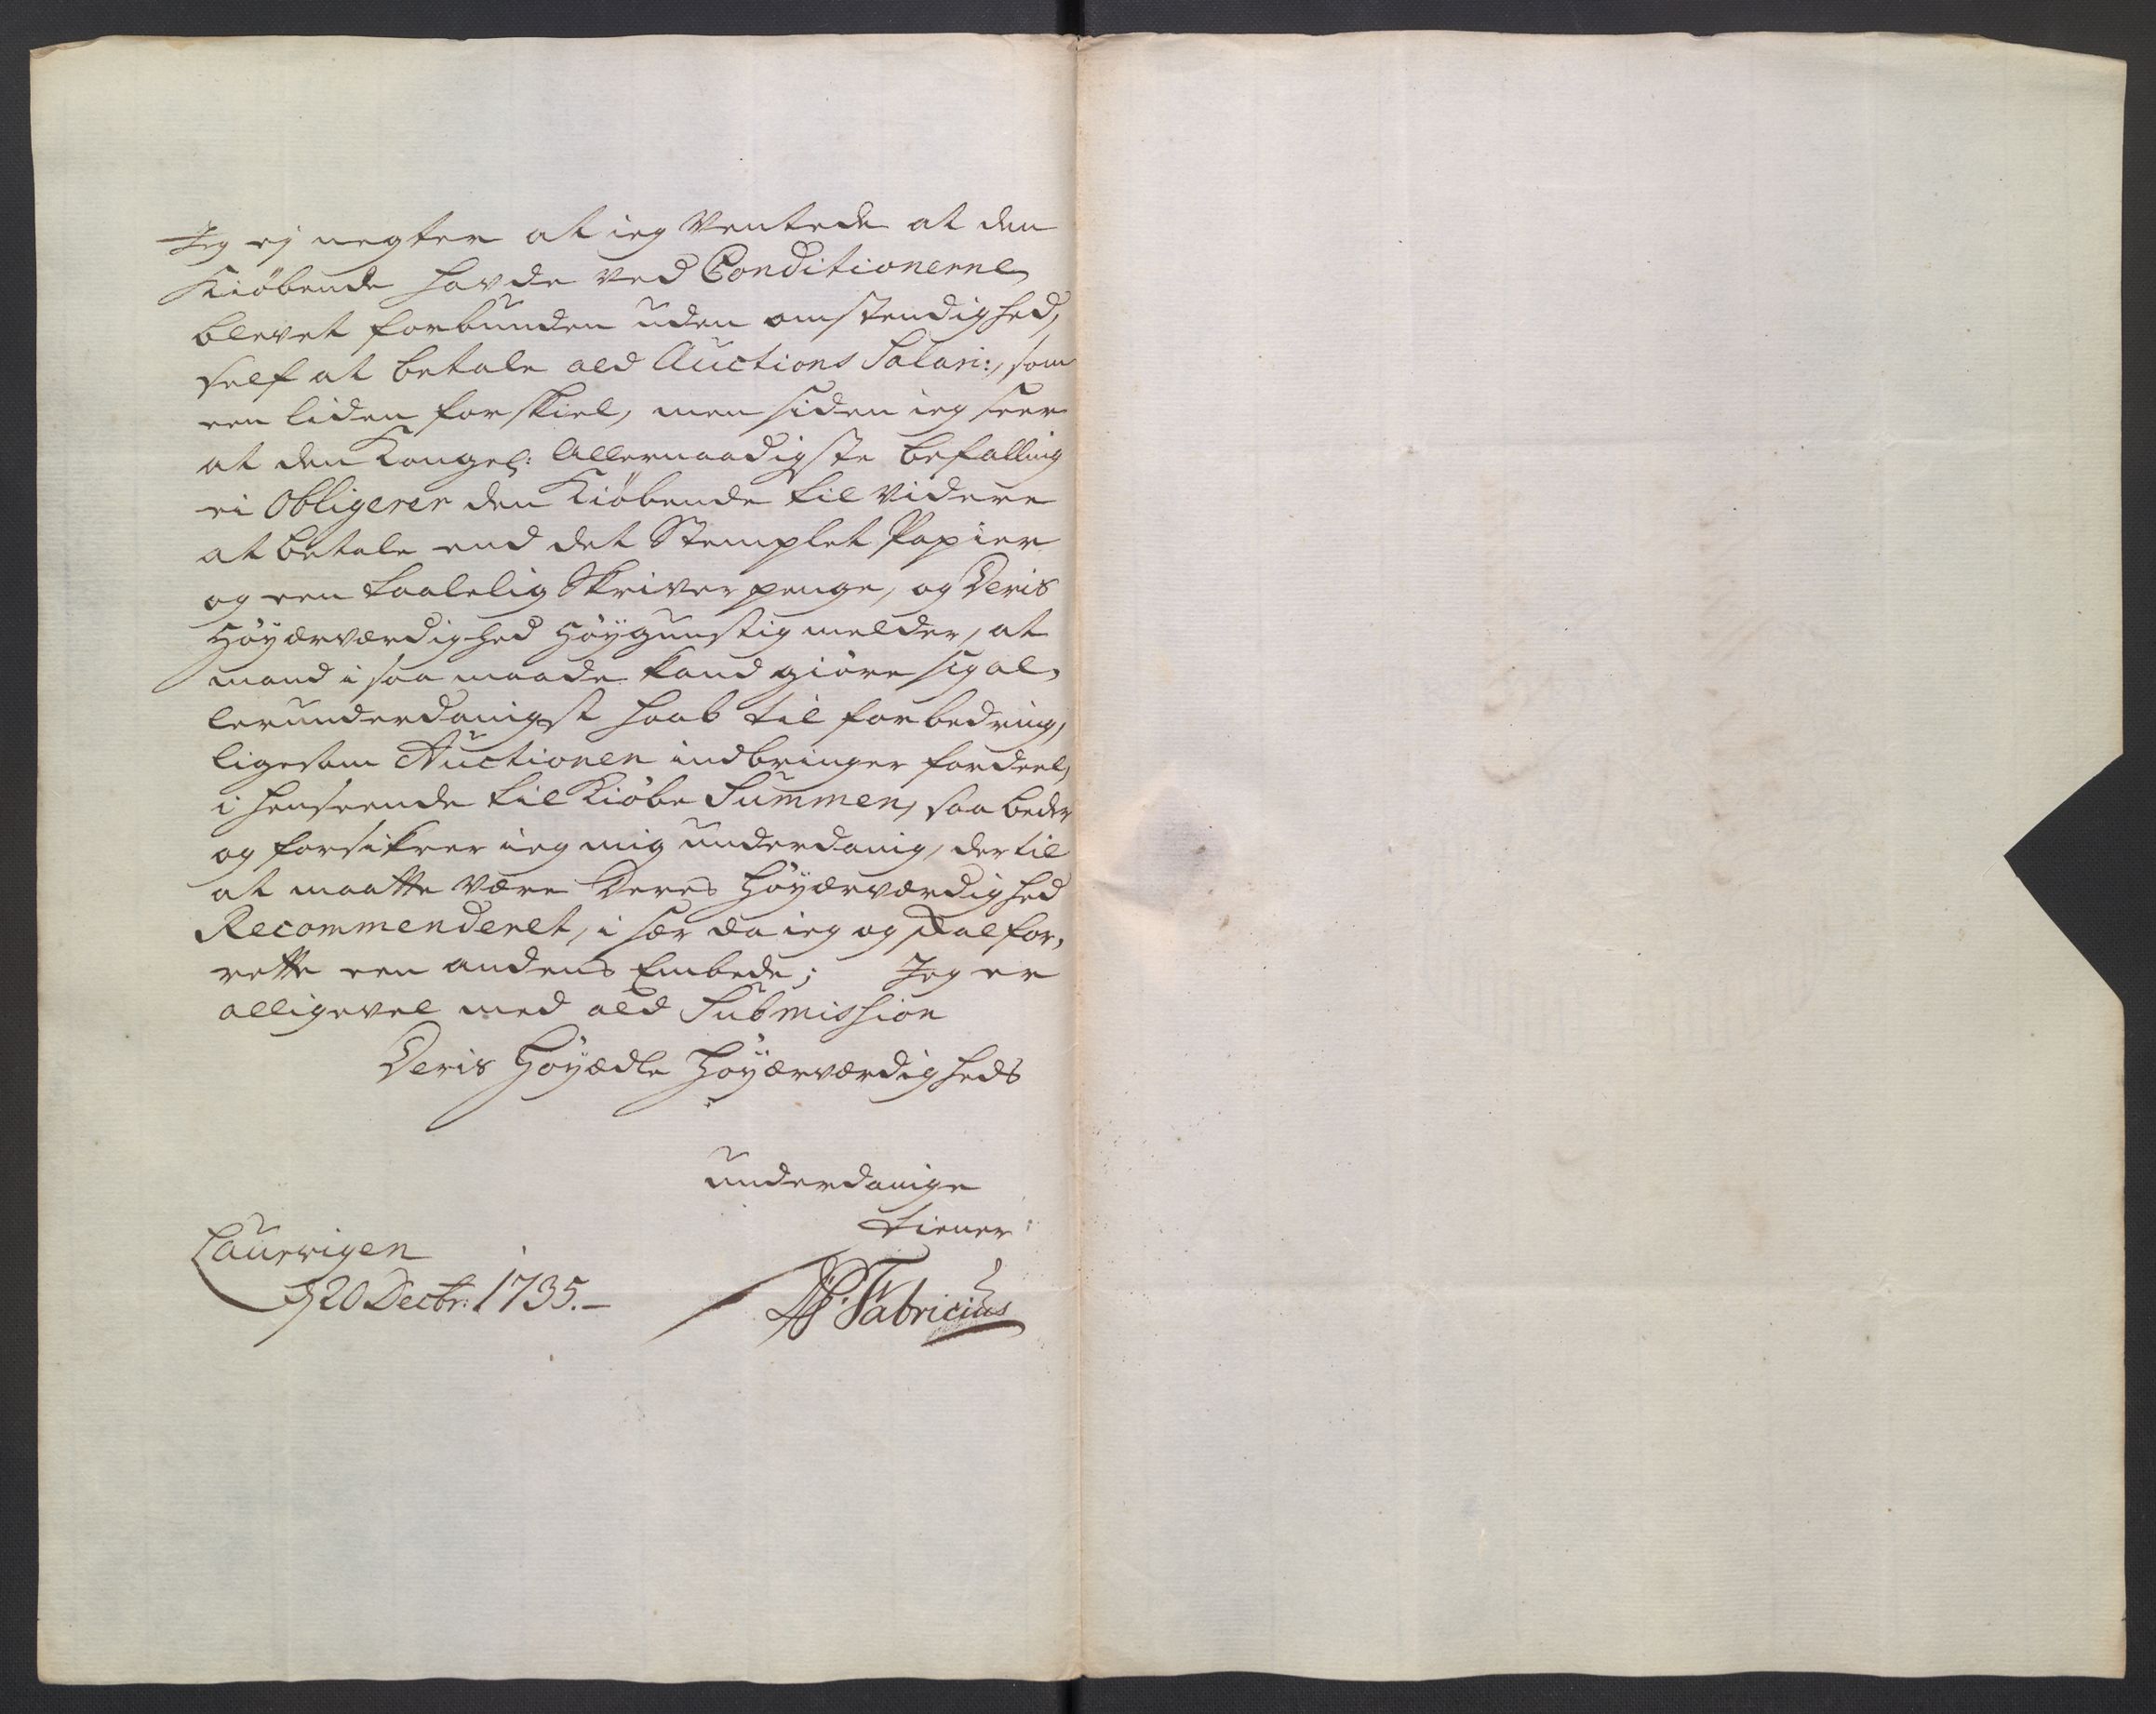 Jeg ej negter at ieg Ventede at den
Kiöbende havde ved Conditionerne
blevet forbunden uden omstendighed,
self at betale ald Auctions Salari:, som
een liden forskiel, men siden ieg seer
at den Kongel: Allernaadigste befalling
ei Obligerer den Kiöbende til videre
at betale end det Stemplet Papier
og een taalelig Skriverpenge, og Deris
Höyærværdighed Höÿgunstig melder, at
mand i saa maade kand giöre sig al-
lerunderdanigst haab til forbedring,
ligesom Auctionen indbringer fordeel,
i henseende til Kiöbe Summen, saa beder
og forsikrer ieg mig underdanig, der til
at maatte være Deres Höÿærværdighed
Recommenderet, i sær da ieg og skal for-
rette een andens Embede; Jeg er
alligevel med ald Submission
Deris Höÿædle Höÿærværdigheds
underdanige
tiener
Laurvigen
d 20 Decbr: 1735.-
Fabricius